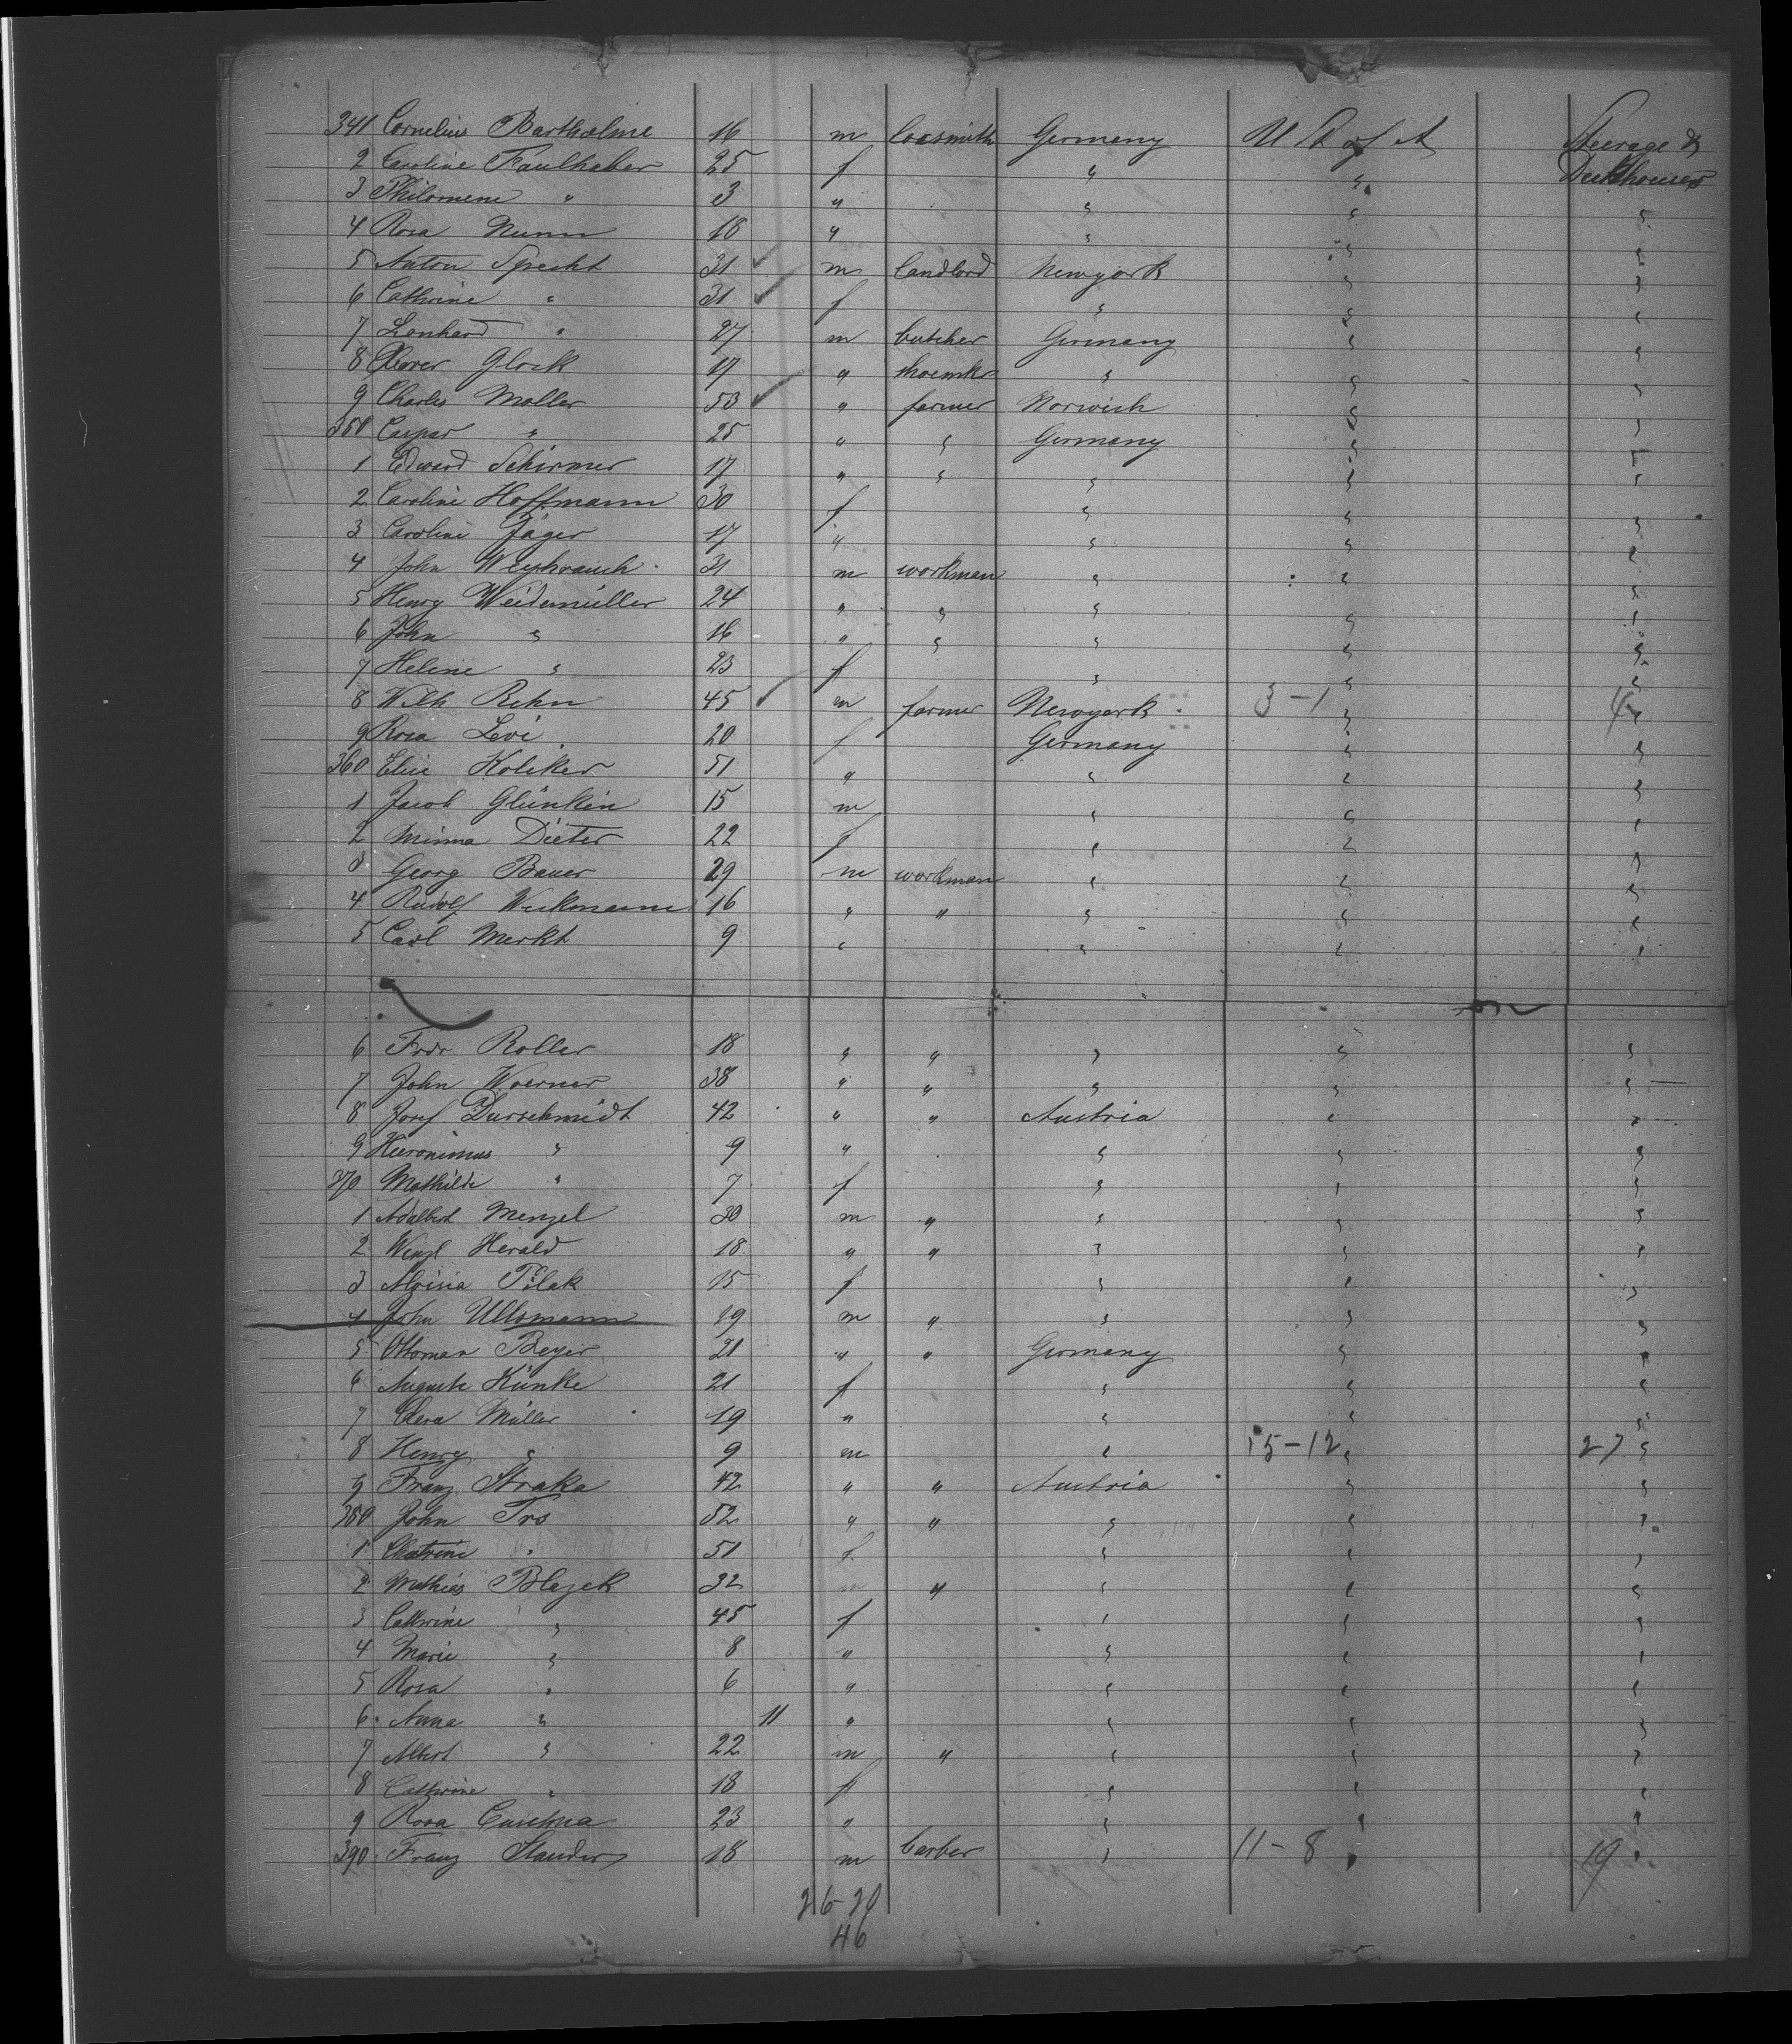 341 Cornelius Bartholme 16 m locsmith Germany U St of A Steerage &
2 Caroline Faulhaber 25 f " " Deckhouses
3 Philomene " 3 " " " "
4 Rosa Nunn 18 " " " "
5 Anton Specht 31 m landlord Newyork " "
6 Cathrine " 31 f " " "
7 Leonhard " 27 m butcher Germany " "
8 Xaver Glock 17 " shoemkr " " "
9 Charles Moller 53 " farmer Norwich " "
350 Caspar " 25 " " Germany " "
1 Edward Schirmer 17 " " " " "
2 Caroline Hoffmann 30 f " " "
3 Caroline Jäger 17 " " " "
4 John Weyhrauch 31 m workman " " "
5 Henry Weidemüller 24 " " " " "
6 John " 16 " " " " "
7 Helene " 23 f " " "
8 Wilh Rehn 45 m farmer Newyork 3-1 " 4 "
9 Rosa Levi 20 f Germany " "
360 Elise Koliker 51 " " " "
1 Jacob Glünkin 15 m " " "
2 Minna Dieter 22 f " " "
3 Georg Bauer 29 m workman " " "
4 Rudolf Weikmann 16 " " " " "
5 Carl Merkt 9 " " " "
6 Fror Roller 18 " " " " "
7 John Woerner 38 " " " " "
8 Josef Durrschmidt 42 " " Austria " "
9 Hieronimus " 9 " " " "
370 Mathilde " 7 f " " "
1 Adalbert Menzel 30 m " " " "
2 Wenzl Herald 18 " " " " "
3 Aloisia Pilak 15 f " " "
4 John Ullsmann 19 m " " " "
5 Ottoman Beyer 21 " " Germany " "
6 Auguste Künke 21 f " " "
7 Clera Müller 19 " " " "
8 Henry " 9 m " 15-12 " 27 "
9 Franz Straka 42 " " Austria " "
380 John Trs 52 " " " " "
1 Chatrine " 51 f " " "
2 Mathias Blazek 32 m " " " "
3 Cathrine " 45 f " " "
4 Marie " 8 " " " "
5 Rosa " 6 " " " "
6 Anna " 11 " " " "
7 Albert " 22 m " " " "
8 Cathrine " 18 f " " "
9 Rosa 23 " " " "
390 Franz Stander 18 m barber " 11-8 " 19 "
26-20
46